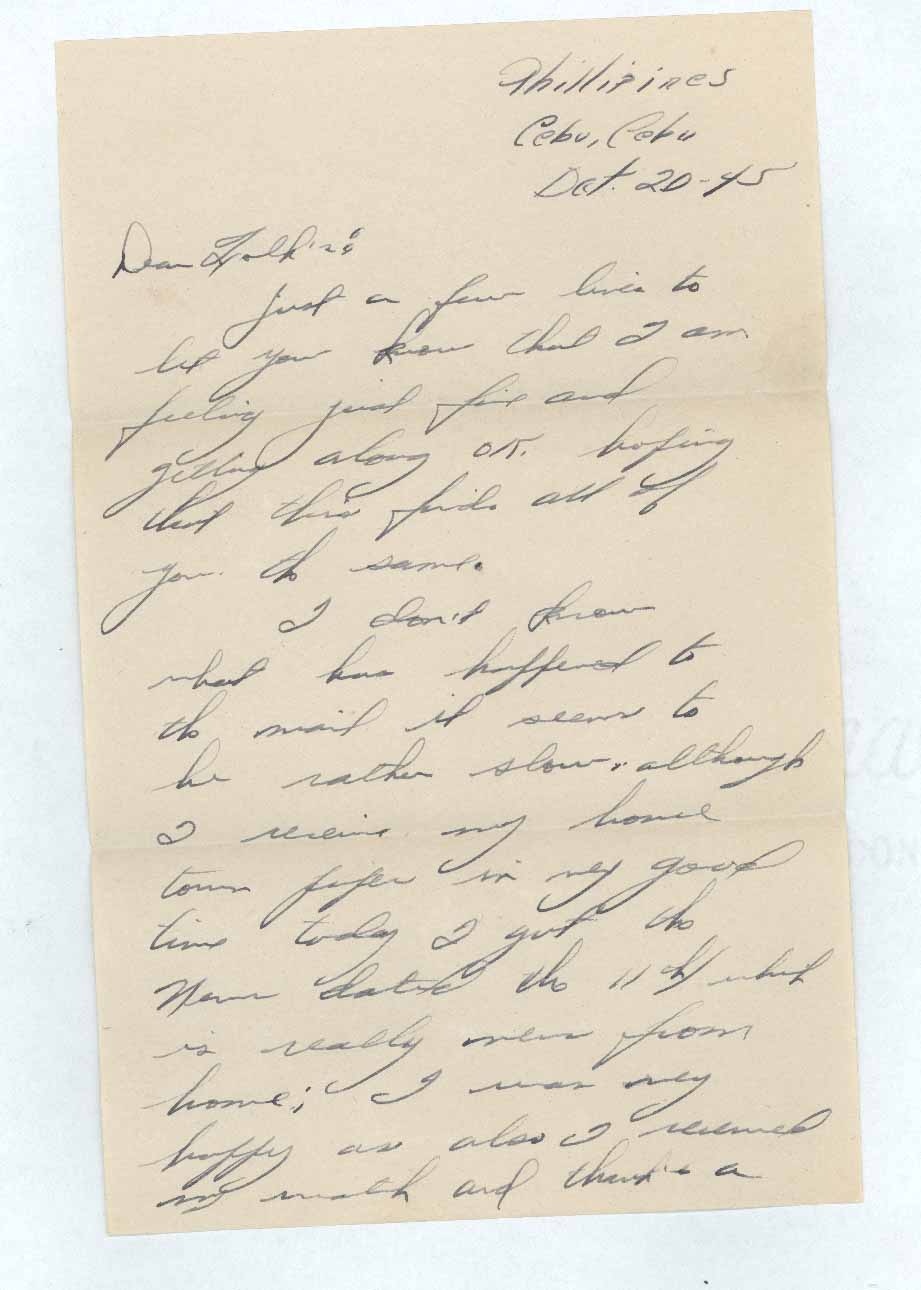 Phillipines
Cebu, Cebu
Oct. 20-45
Dear Folk's:
Just a few lines to
let you know that I am
feeling just fine and
getting along OK. hoping
that this finds all of
you the same.
I don't know
what has happened to
the mail it seems to
be rather slow, although
I receive my home
town paper in very good
time today I got the
News dated the 11th which
is really news from
home; I was very
happy as also I received
my watch and thank's a